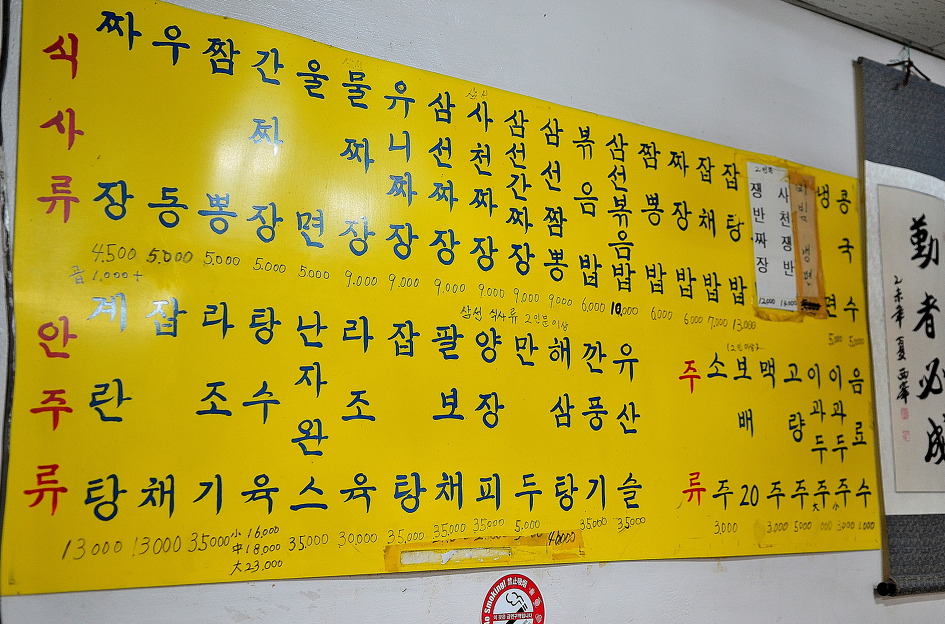 식사류
짜장 4.500
곱 1,000+
우동 5.000
짬뽕 5,000
간짜장 5,000
울면 5000
물짜장 9,000
유니짜장 9,000
삼선짜장 9,000
사천짜장 9,000
삼선간짜장 9,000
삼선짬뽕 9000
볶음밥 6,000
삼선볶음밥 10,000
짬뽕밥 6000
짜장밥 6000
잡채밥 7,000
잡탕밥 13,000
쟁반짜장 12,000
사천쟁반
냉면 5,000
콩국수 5,000
삼선 식사류 2인분이상
안주류
계란탕 13000
잡채 13000
라조기 35000
탕수육 小 16,000
中 18,000
大 23,000
난자완스 35,000
라조육 30,000
잡탕 35,000
팔보채 35,000
양장피 35000
만두 5,000
해삼탕 40000
깐풍기 35,000
유산슬 35,000
주류
소주 3,000
보배20
맥주 3000
고량주 5000
이과두주 大
이과두주 小 3000
음료수 1,000
勤者必成
乙未年 夏 西峯
No Smoking! 禁止吸烟